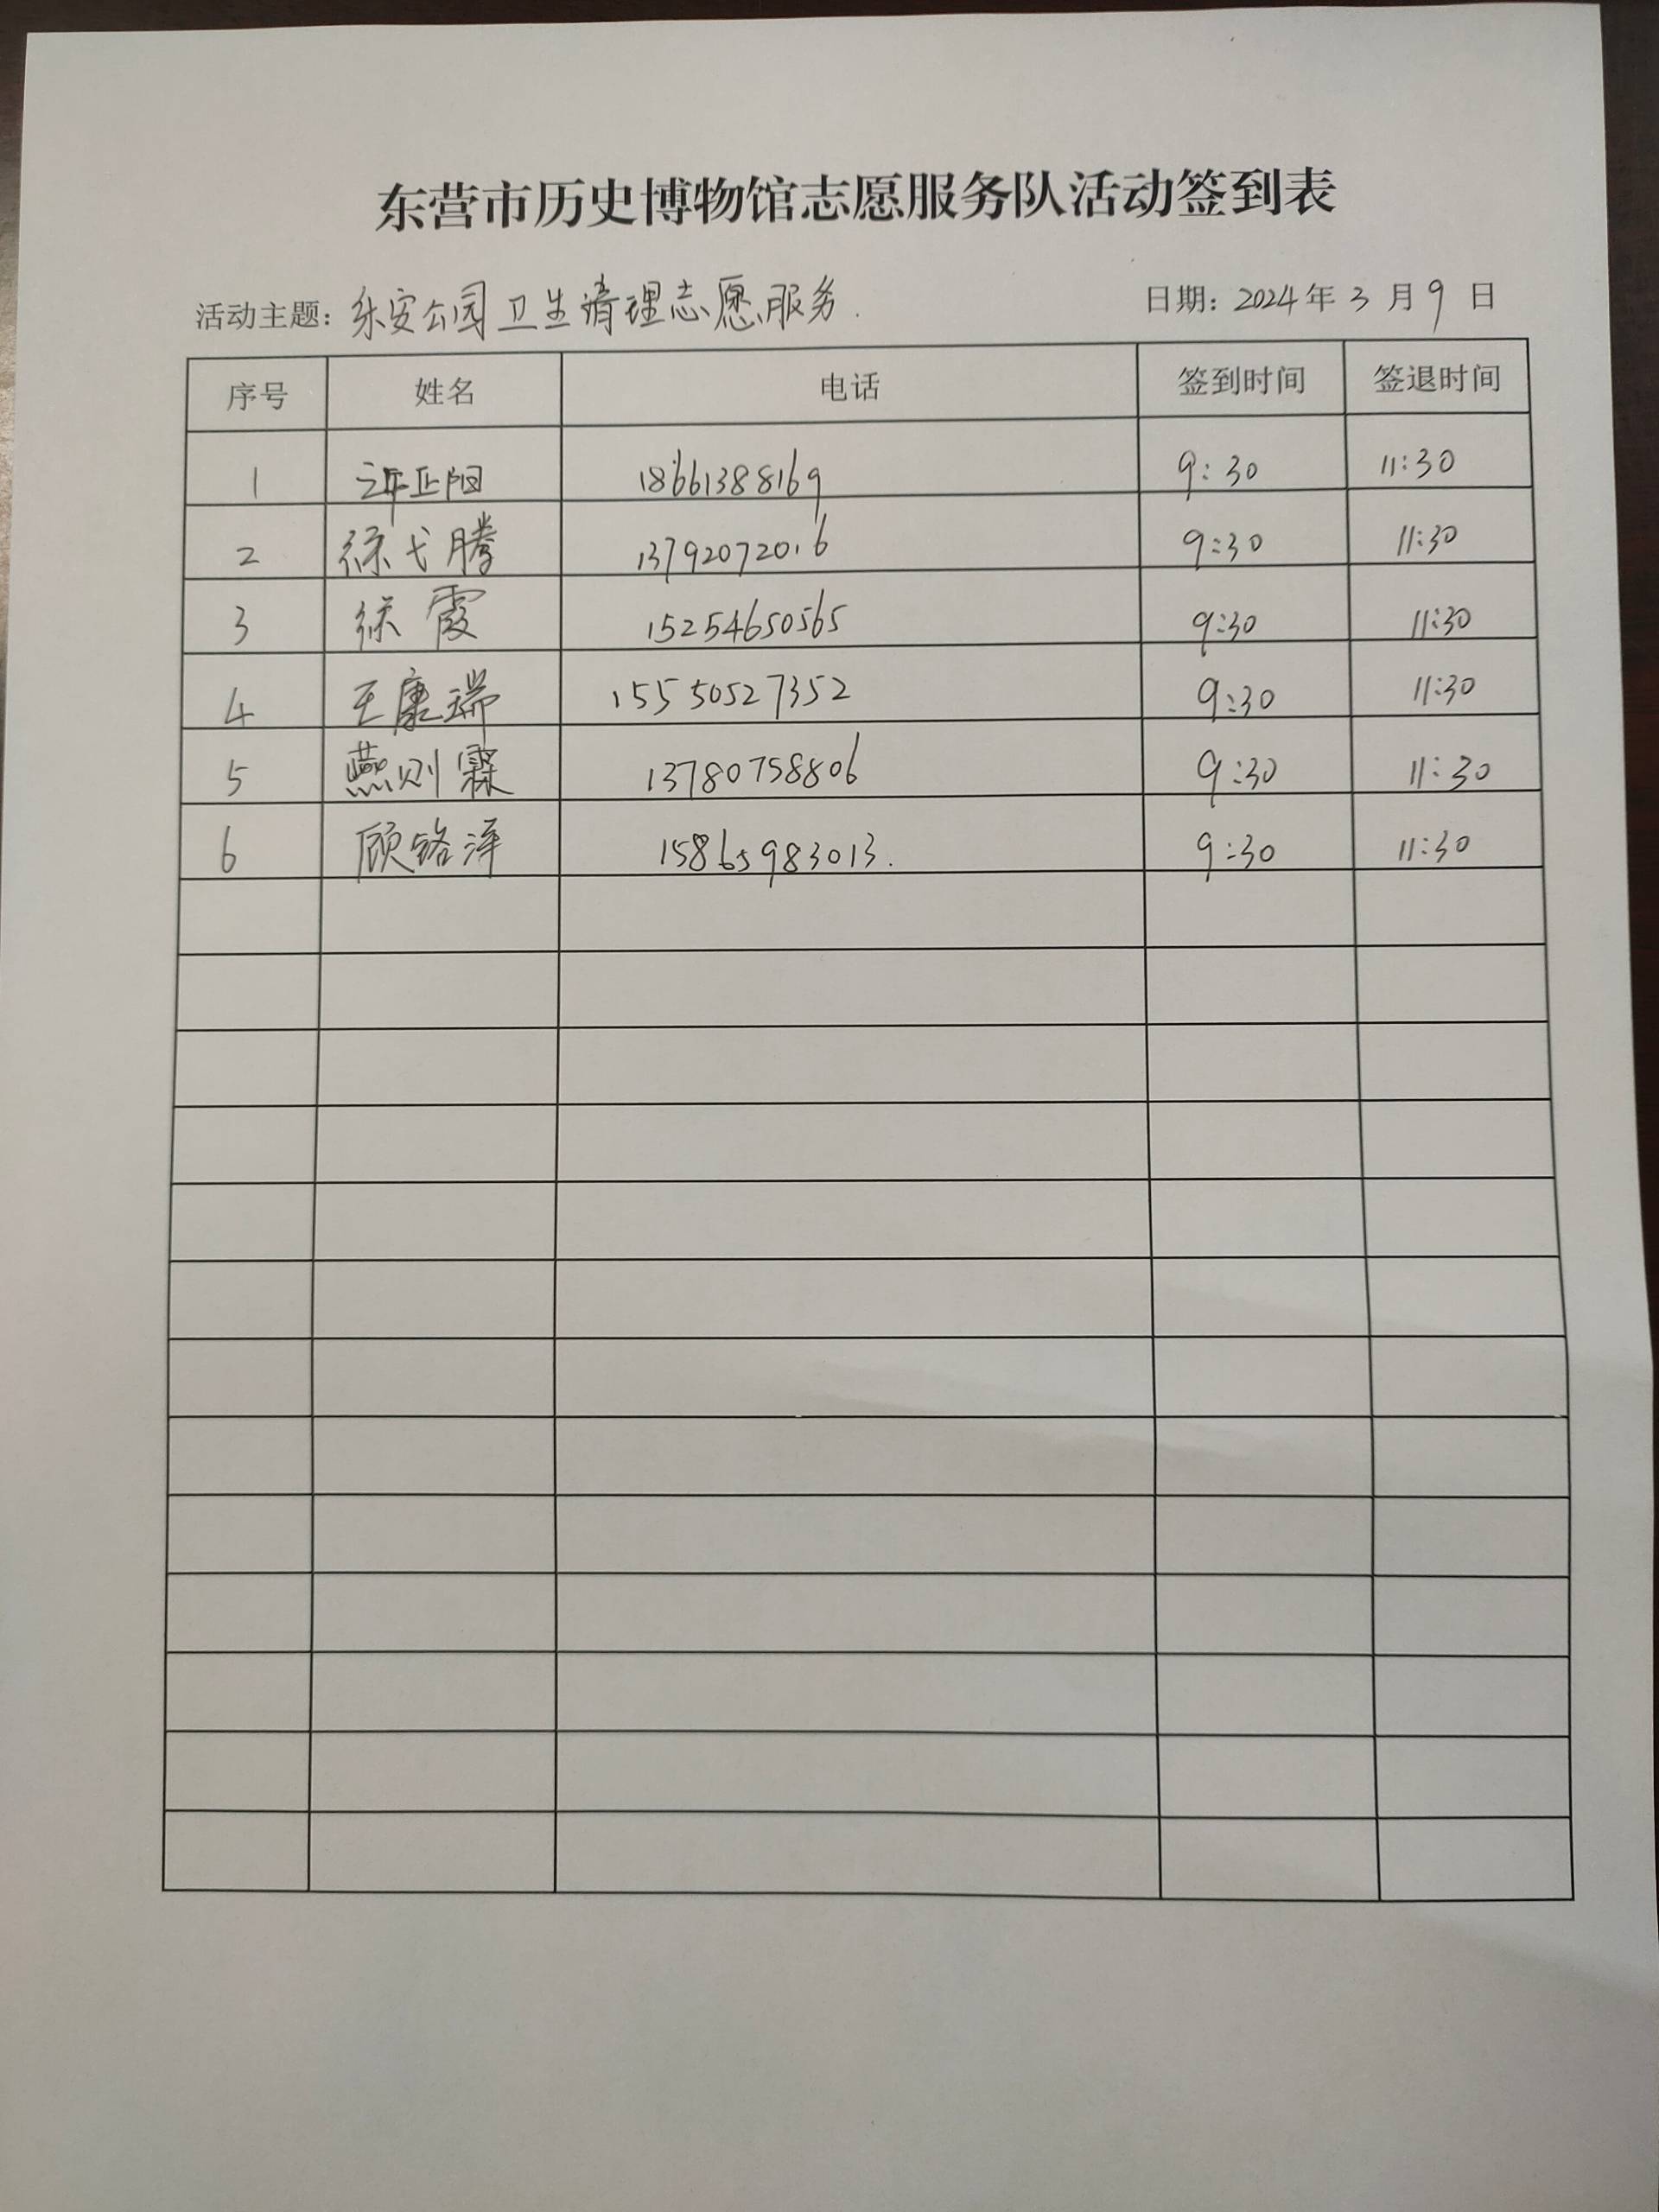 东营市历史博物馆志愿服务队活动签到表
活动主题：乐安公园卫生清理志愿服务. 日期：2024年3月9日
序号 姓名 电话 签到时间 签退时间
1 许正阳 18661388169 9:30 11:30
2 徐弋腾 13792072016 9:30 11:30
3 徐霞 15254650565 9:30 11:30
4 王康瑞 15550527352 9:30 11:30
5 燕则霖 13780758806 9:30 11:30
6 顾铭泽 15865983013. 9:30 11:30